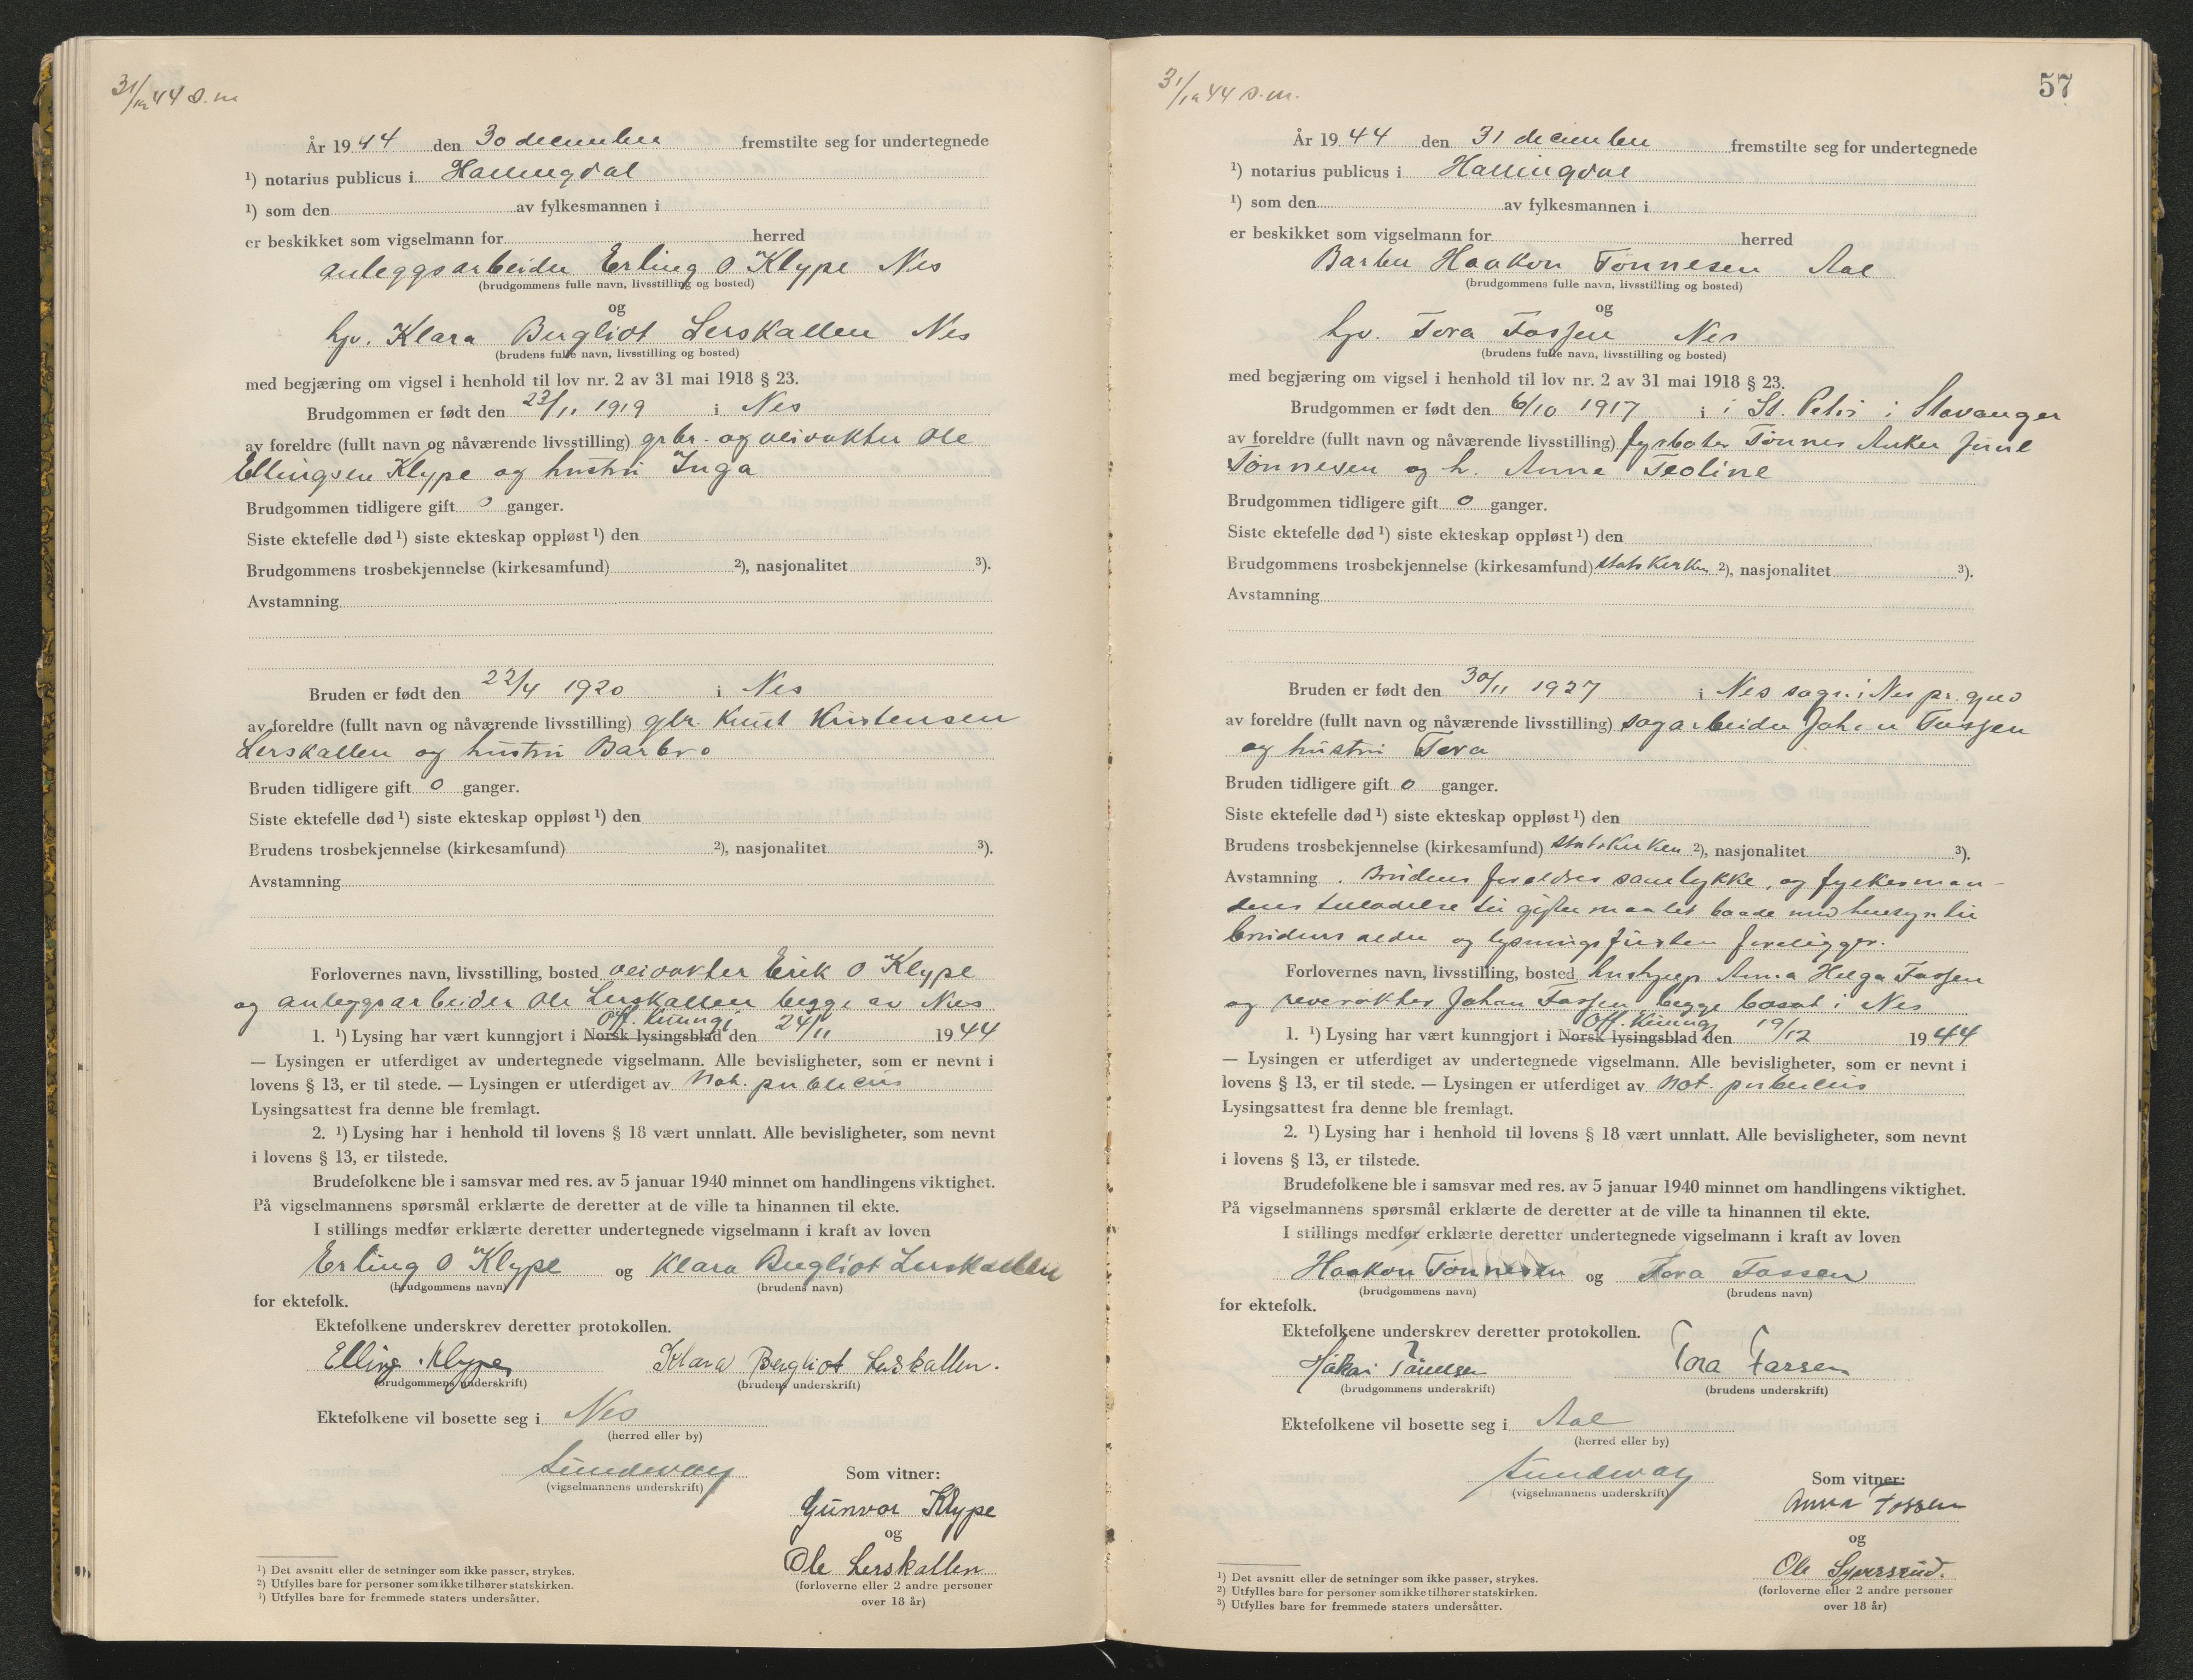 31/12 44 s.m
År 1944 den 30 december fremstilte seg for undertegnede
¹) notarius publicus i Hallingdal
¹) som den av fylkesmannen i
er beskikket som vigselmann for herred
anleggsarbeider Erling O Klype Nes
(brudgommens fulle navn, livsstilling og bosted)
og
hjv. Klara Bergliot Lerskallen Nes
(brudens fulle navn, livsstilling og bosted)
med begjæring om vigsel i henhold til lov nr. 2 av 31 mai 1918 § 23.
Brudgommen er født den 23/11 1919 i Nes
av foreldre (fullt navn og nåværende livsstilling) grbr. og veivokter Ole
Ellingsen Klype og hustru Inga
Brudgommen tidligere gift 0 ganger.
Siste ektefelle død ¹) siste ekteskap oppløst ¹) den
Brudgommens trosbekjennelse (kirkesamfund) ²), nasjonalitet ³).
Avstamning
Bruden er født den 22/4 1920 i Nes
av foreldre (fullt navn og nåværende livsstilling) gbr. Knut Kristensen
Lerskallen og hustru Barbro
Bruden tidligere gift 0 ganger.
Siste ektefelle død ¹) siste ekteskap oppløst ¹) den
Brudens trosbekjennelse (kirkesamfund) ²), nasjonalitet ³).
Avstamning
Forlovernes navn, livsstilling, bosted veivokter Erik O Klype
og anleggsarbeider Ole Lerskallen begge av Nes
Off. Kunngj
1. ¹) Lysing har vært kunngjort i Norsk lysingsblad den 24/11 1944
— Lysingen er utferdiget av undertegnede vigselmann. Alle bevisligheter, som er nevnt i
lovens § 13, er til stede. — Lysingen er utferdiget av Not. publicus
Lysingsattest fra denne ble fremlagt.
2. ¹) Lysing har i henhold til lovens § 18 vært unnlatt. Alle bevisligheter, som nevnt
i lovens § 13, er tilstede.
Brudefolkene ble i samsvar med res. av 5 januar 1940 minnet om handlingens viktighet.
På vigselmannens spørsmål erklærte de deretter at de ville ta hinannen til ekte.
I stillings medfør erklærte deretter undertegnede vigselmann i kraft av loven
Erling O Klype og Klara Bergliot Lerskallen
(brudgommens navn) (brudens navn)
for ektefolk.
Ektefolkene underskrev deretter protokollen.
Elling Klype Klara Bergliot Lerskallen.
(brudgommens underskrift) (brudens underskrift)
Ektefolkene vil bosette seg i Nes
(herred eller by)
Lundevay Som vitner:
(vigselmannens underskrift)
Gunvor Klype
og
Ole Lerskallen
(forloverne eller 2 andre personer
over 18 år)
¹) Det avsnitt eller de setninger som ikke passer, strykes.
²) Utfylles bare for personer som ikke tilhører statskirken.
³) Utfylles bare for fremmede staters undersåtter.
31/12 44 s.m.
57
År 1944 den 31 december fremstilte seg for undertegnede
¹) notarius publicus i Hallingdal
¹) som den av fylkesmannen i
er beskikket som vigselmann for herred
Barber Haakon Tønnesen Aal
(brudgommens fulle navn, livsstilling og bosted)
og
hjv. Tora Fossen Nes
(brudens fulle navn, livsstilling og bosted)
med begjæring om vigsel i henhold til lov nr. 2 av 31 mai 1918 § 23.
Brudgommen er født den 6/10 1917 i i St. Petri i Stavanger
av foreldre (fullt navn og nåværende livsstilling) fyrbøter Tønnes Anker Juul
Tønnesen og h. Anna Teoline
Brudgommen tidligere gift 0 ganger.
Siste ektefelle død ¹) siste ekteskap oppløst ¹) den
Brudgommens trosbekjennelse (kirkesamfund) statskirken ²), nasjonalitet ³).
Avstamning
Bruden er født den 30/11 1927 i Nes sogn i Nes pr.gjeld
av foreldre (fullt navn og nåværende livsstilling) sagarbeider Johan Fossen
og hustru Tora
Bruden tidligere gift 0 ganger.
Siste ektefelle død ¹) siste ekteskap oppløst ¹) den
Brudens trosbekjennelse (kirkesamfund) statskirken ²), nasjonalitet ³).
Avstamning . Brudens foreldres samtykke, og fylkesman-
dens tilladelse til giftermaalet baade med hensyn til
brudens alder og lysningsfristen foreligger.
Forlovernes navn, livsstilling, bosted Anna Helga Fossen
og reverøkter Johan Fossen begge bosat i Nes
Off. Kunng
1. ¹) Lysing har vært kunngjort i Norsk lysingsblad den 19/12 1944
— Lysingen er utferdiget av undertegnede vigselmann. Alle bevisligheter, som er nevnt i
lovens § 13, er til stede. — Lysingen er utferdiget av Not. publicus
Lysingsattest fra denne ble fremlagt.
2. ¹) Lysing har i henhold til lovens § 18 vært unnlatt. Alle bevisligheter, som nevnt
i lovens § 13, er tilstede.
Brudefolkene ble i samsvar med res. av 5 januar 1940 minnet om handlingens viktighet.
På vigselmannens spørsmål erklærte de deretter at de ville ta hinannen til ekte.
I stillings medfør erklærte deretter undertegnede vigselmann i kraft av loven
Haakon Tønnesen og Tora Fossen
(brudgommens navn) (brudens navn)
for ektefolk.
Ektefolkene underskrev deretter protokollen.
Håkon Tønnesen Tora Fossen
(brudgommens underskrift) (brudens underskrift)
Ektefolkene vil bosette seg i Aal
(herred eller by)
Lundevay Som vitner:
(vigselmannens underskrift)
Anna Fossen
og
Ole Syversrud.
(forloverne eller 2 andre personer
over 18 år)
¹) Det avsnitt eller de setninger som ikke passer, strykes.
²) Utfylles bare for personer som ikke tilhører statskirken.
³) Utfylles bare for fremmede staters undersåtter.